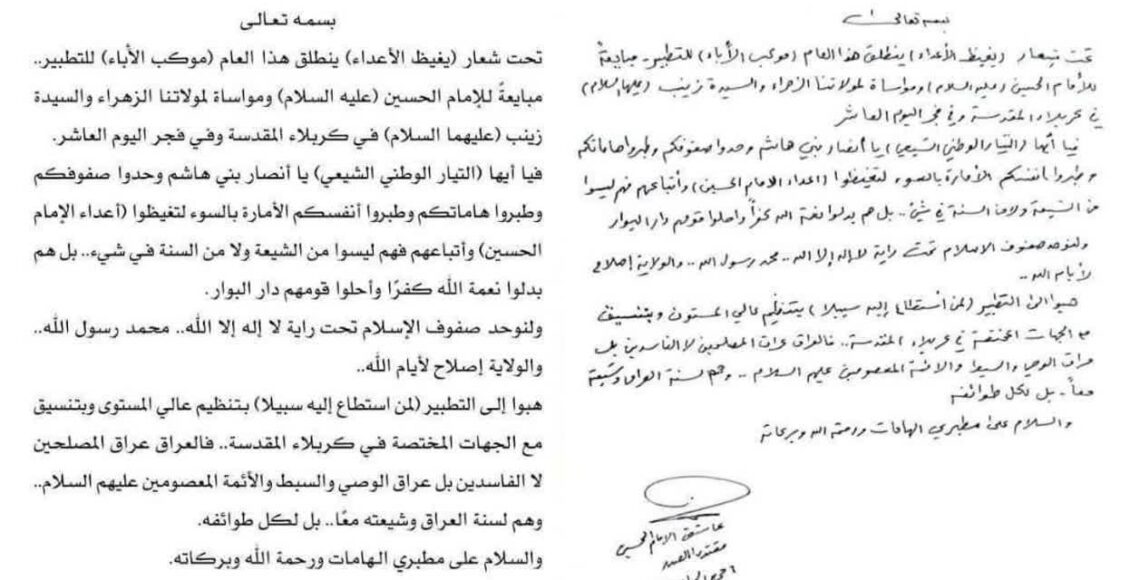 بسمه تعالى
تحت شعار (يغيظ الأعداء) ينطلق هذا العام (موكب الأباء) للتطبير.. مبايعةً
للأمام الحسين (عليه السلام) ومواساة لمولاتنا الزهراء والسيدة زينب (عليهما السلام)
في كربلاء المقدسة وفي فجر اليوم العاشر
فيا أيها (التيار الوطني الشيعي) يا أنصار بني هاشم وحدوا صفوفكم وطبروا هاماتكم
وطبروا انفسكم الأمارة بالسوء لتغيظوا (اعداء الامام الحسين) وأتباعهم فهم ليسوا
من الشيعة ولا من السنة في شيء.. بل هم بدلوا نعمة الله كفراً وأحلوا قومهم دار البوار
ولنوحد صفوف الاسلام تحت راية لا إله إلا الله.. محمد رسول الله.. والولاية إصلاح
لأيام الله..
هبوا الى التطبير (لمن استطاع إليه سبيلا) بتنظيم عالي المستوى وبتنسيق
مع الجهات المختصة في كربلاء المقدسة.. فالعراق عراق المصلحين لا الفاسدين بل
عراق الوصي والسبط والائمة المعصومين عليهم السلام.. وهم لسنة العراق وشيعته
معاً.. بل لكل طوائفه
والسلام على مطبري الهامات ورحمة الله وبركاته
عاشق الامام الحسين
مقتدى الصدر
بسمه تعالى
تحت شعار (يغيظ الأعداء) ينطلق هذا العام (موكب الأباء) للتطبير..
مبايعةً للإمام الحسين (عليه السلام) ومواساة لمولاتنا الزهراء والسيدة
زينب (عليهما السلام) في كربلاء المقدسة وفي فجر اليوم العاشر.
فيا أيها (التيار الوطني الشيعي) يا أنصار بني هاشم وحدوا صفوفكم
وطبروا هاماتكم وطبروا أنفسكم الأمارة بالسوء لتغيظوا (أعداء الإمام
الحسين) وأتباعهم فهم ليسوا من الشيعة ولا من السنة في شيء.. بل هم
بدلوا نعمة الله كفرًا وأحلوا قومهم دار البوار.
ولنوحد صفوف الإسلام تحت راية لا إله إلا الله.. محمد رسول الله..
والولاية إصلاح لأيام الله..
هبوا إلى التطبير (لمن استطاع إليه سبيلا) بتنظيم عالي المستوى وبتنسيق
مع الجهات المختصة في كربلاء المقدسة.. فالعراق عراق المصلحين
لا الفاسدين بل عراق الوصي والسبط والأئمة المعصومين عليهم السلام..
وهم لسنة العراق وشيعته معًا.. بل لكل طوائفه.
والسلام على مطبري الهامات ورحمة الله وبركاته.